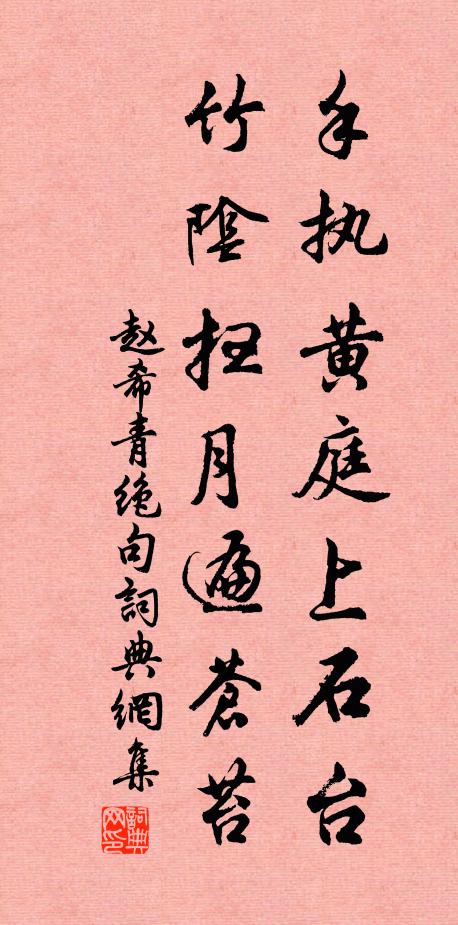 手执黄庭上石台
竹陰扫月遍蒼苔
赵希青绝句詞典網集
詞典网印